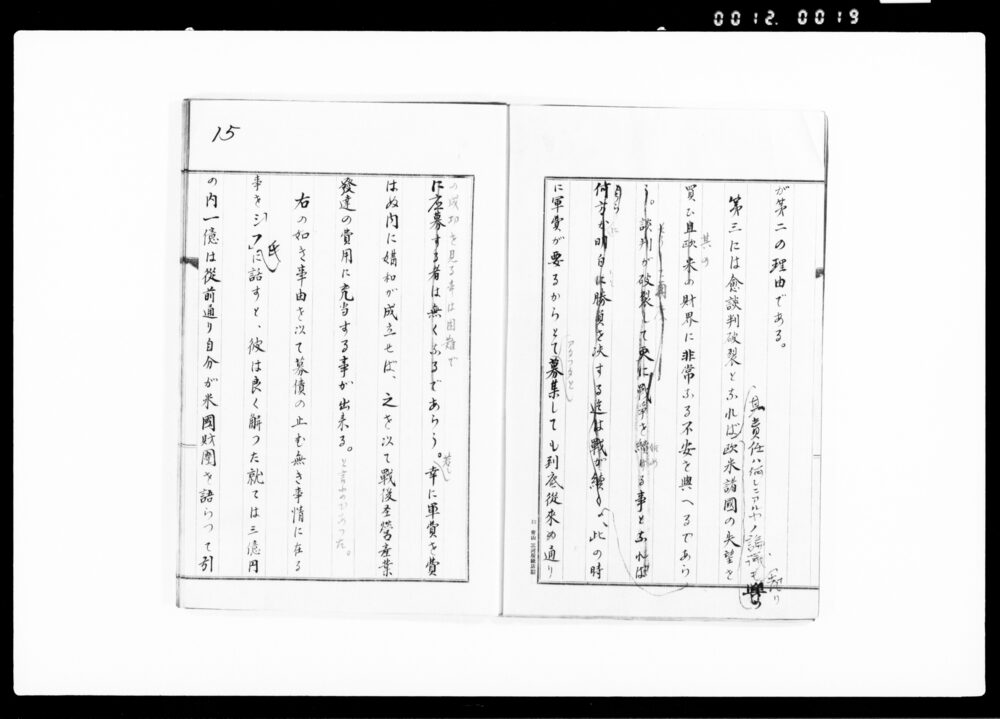 0012 0019
が第二の理由である。
第三には愈談判破裂となれば欧米諸國の失望を
其責任ハ何レニアルヤノ論議も
起り
買ひ且欧米の財界に非常なる不安を與へるであら
其の
う。談判が破裂して更に戰爭を繼續する事となれば
自ら
何方か明白に勝負を決する迄は戰が續く、此の時
に軍費が要るからとて募集しても到底從來の通り
15
の成功を見る事は困難で
に應募する者は無くなるであらう。幸に軍費を費
若し
はぬ内に媾和が成立せば、之を以て戰後経營産業
發達の費用に充当する事が出来る。
と言ふのであつた。
右の如き事由を以て募債の止む無き事情に在る
事をシフ氏に話すと、彼は良く解つた就ては三億円
の内一億は從前通り自分が米國財團を語らつて引